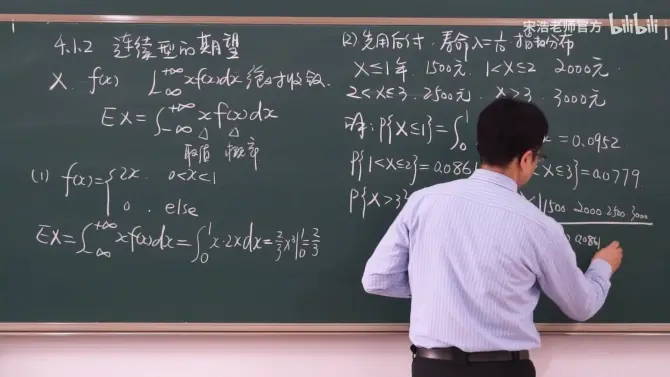 宋浩老师官方 bilibili
4.1.2 连续型的期望
X f(x) ∫_{-∞}^{+∞} xf(x)dx 绝对收敛.
EX=∫_{-∞}^{+∞} x f(x)dx
取值 概率
(1) f(x)={2x. 0<x<1
0. else
EX=∫_{-∞}^{+∞} xf(x)dx=∫_0^1 x·2xdx=2/3 x³|_0^1=2/3
(2) 先用后付. 寿命 λ=1/10 指数分布
X≤1年. 1500元. 1<X≤2 2000元.
2<X≤3. 2500元. X>3. 3000元.
解: P{X≤1}=∫_0^1 x=0.0952
P{1<X≤2}=0.0861 <X≤3}=0.0779
P{X>3}
1500 2000 2500 3000
0.0861